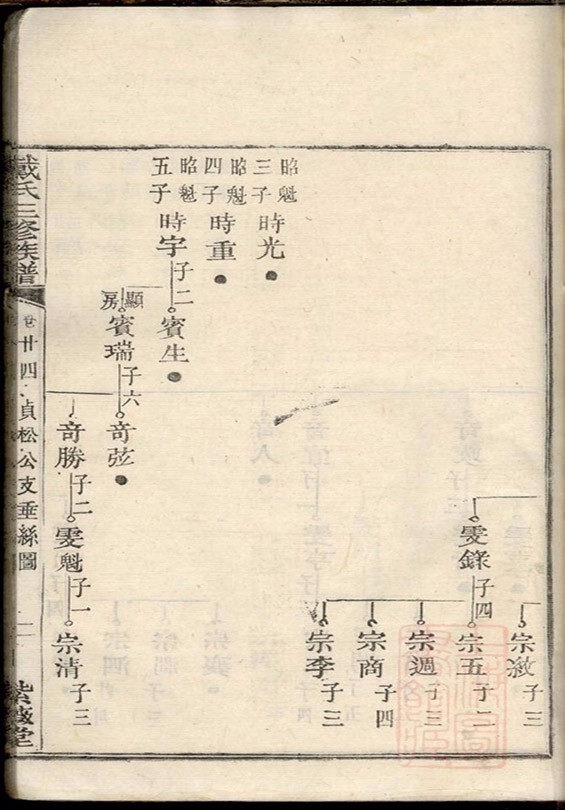 宗敘子三
雯錄子四
宗五子二
宗週子三
宗商子四
宗李子三
昭魁三子時光
昭魁四子時重
昭魁五子時宇子二
賓生
顯房賓瑞子六
奇弦
奇勝子二
雯魁子一
宗清子三
戴氏三修族譜
卷廿四
貞松公支垂絲圖
紫薇堂